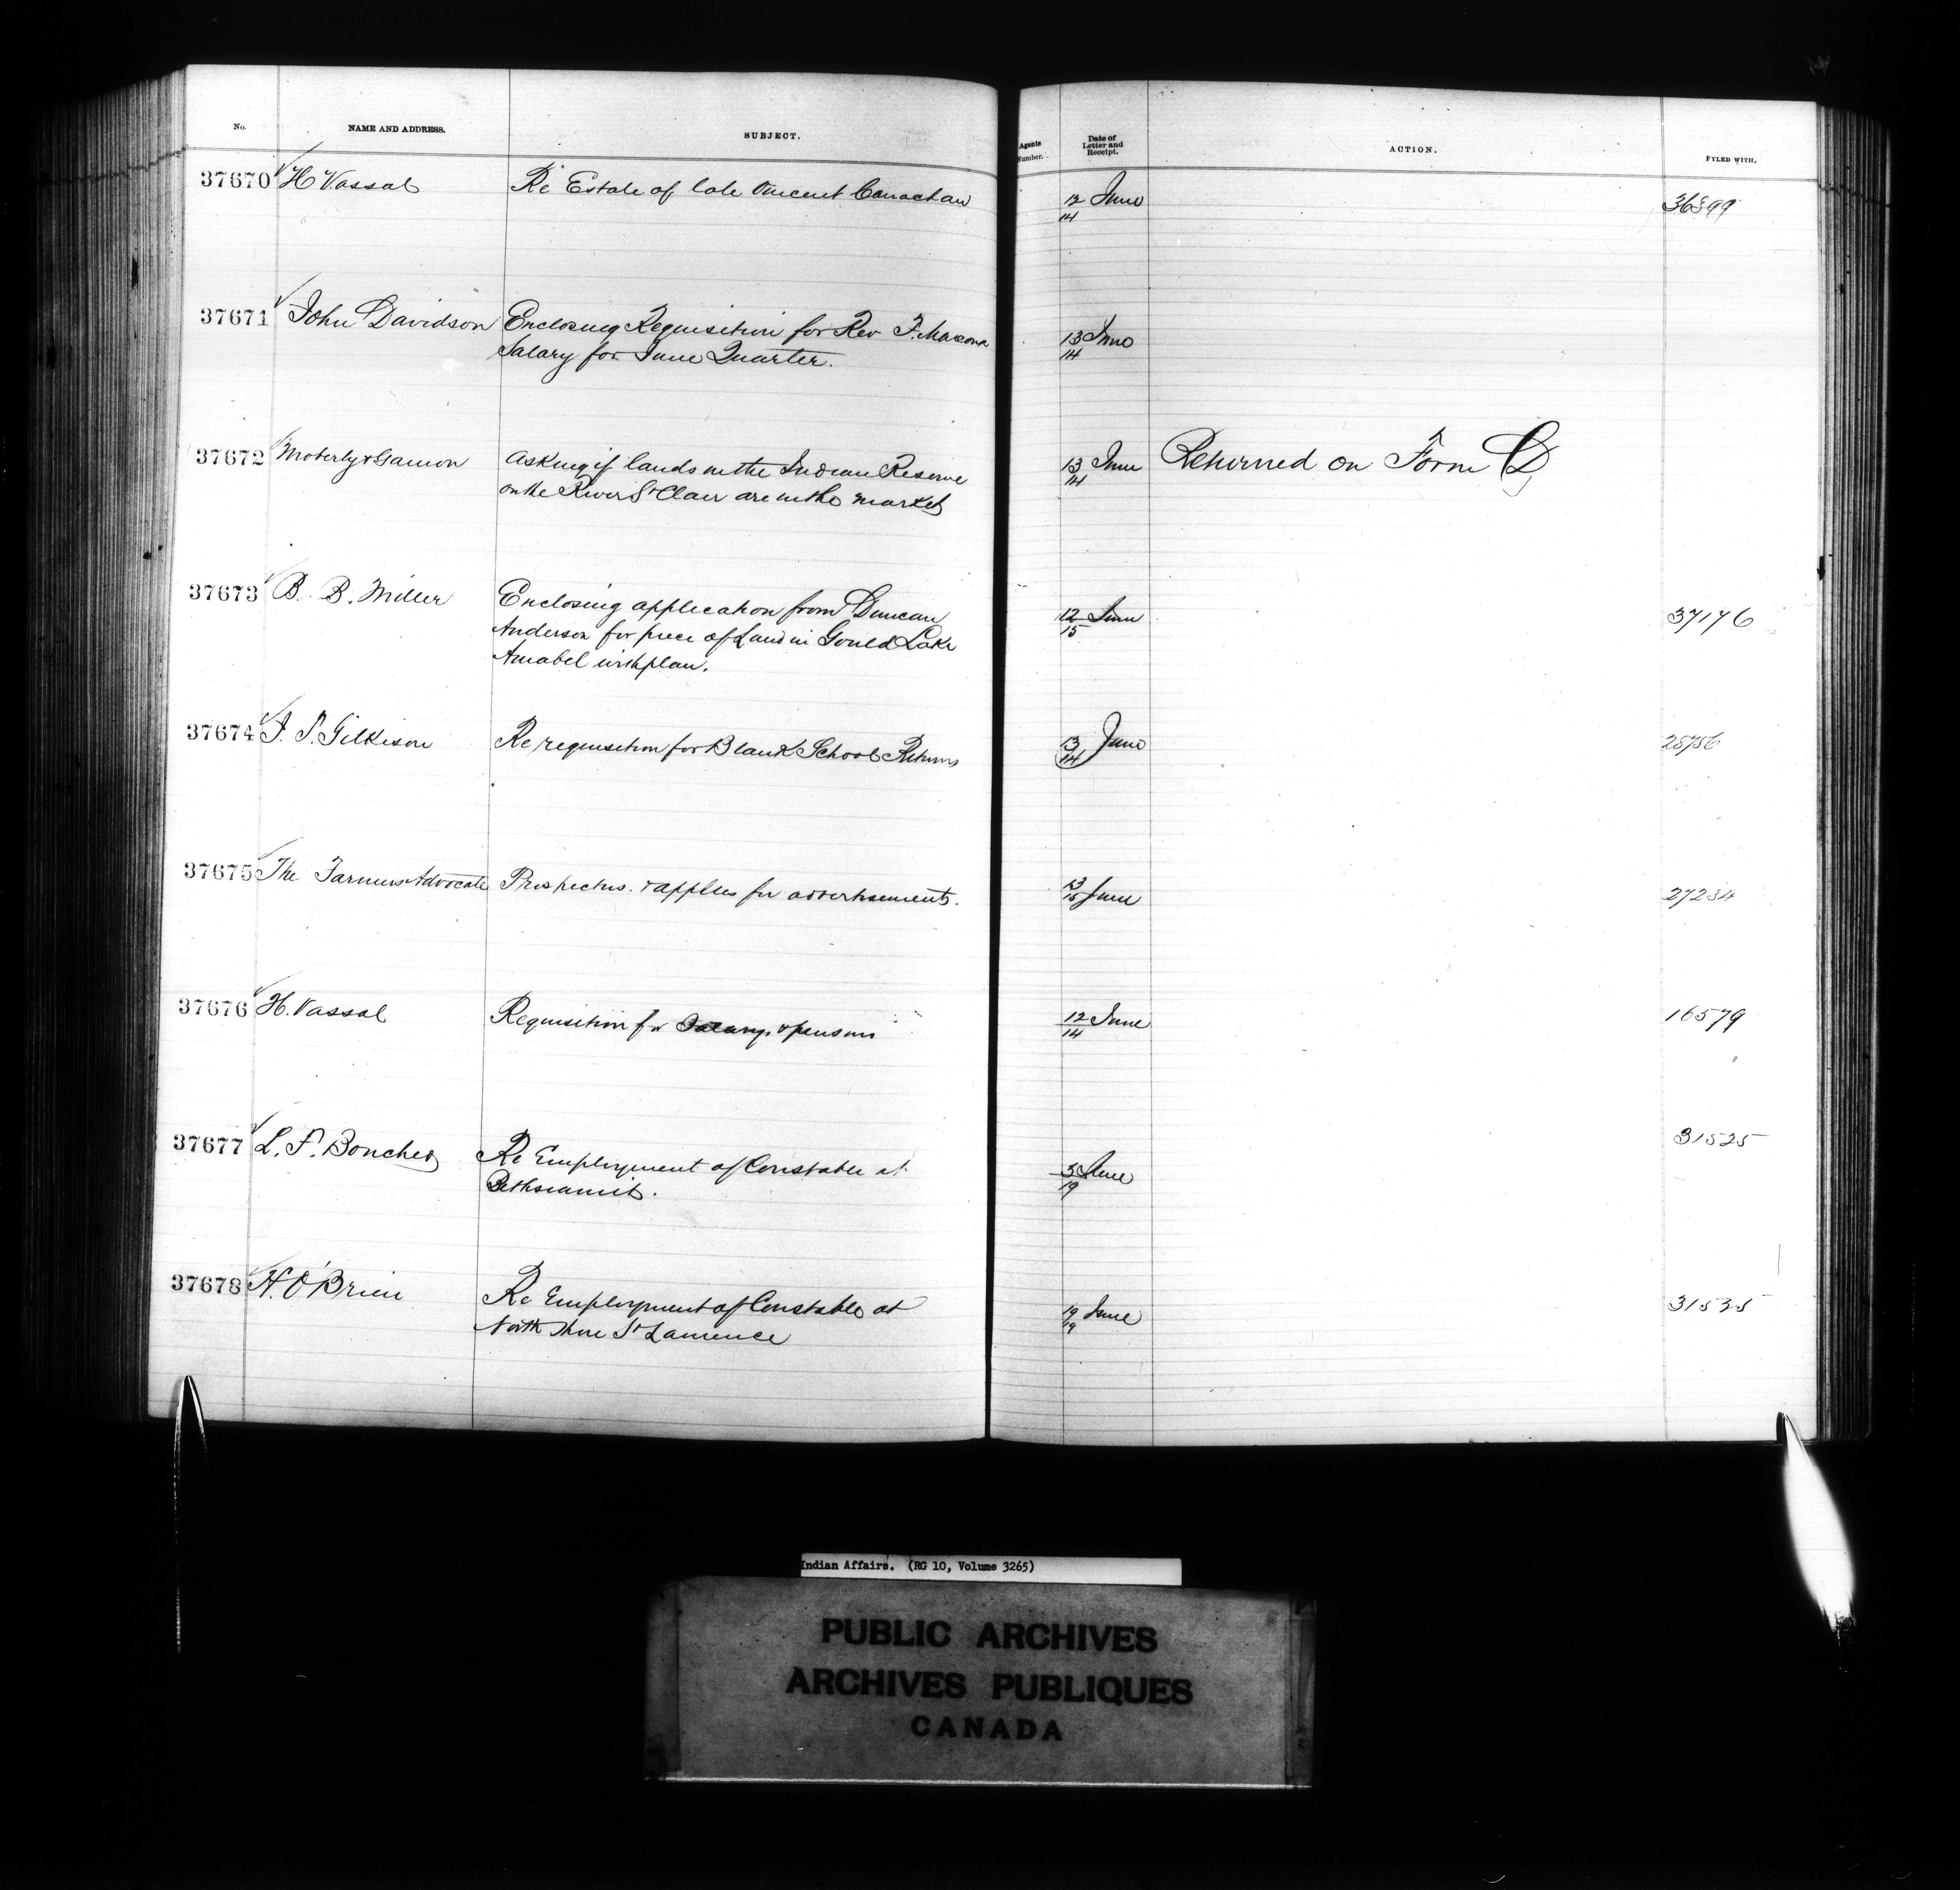 No. NAME AND ADDRESS. SUBJECT. Agents Number. Date of Letter and Receipt. ACTION. FYLED WITH.
37670 H Vassal Re Estate of late Vincent 12/14 June 36399
37671 John Davidson Enclosing Requisition for Rev F. 13/14 June
Salary for June Quarter.
37672 Moberly & Gamon Asking if lands in the Indian Reserve 13/14 June Returned on Form D
on the River St Clair are in the market
37673 B. B. Miller Enclosing application from Duncan 12/15 June 37176
Anderson for piece of Land in Gould Lake
Amabel with plan.
37674 J. T. Gilkison Re requisition for Blank School Returns 13/14 June 28756
37675 The Farmers Advocate Prospectus. & applies for advertisements. 13/15 June 27234
37676 H. Vassal Requisition for Salary & pensions 12/14 June 16579
37677 L. F. Boucher Re Employment of Constable at 3/19 June 31525
Bethsiamits.
37678 H. O'Brien Re Employment of Constable at 19/19 June 31525
North Shore St Laurence
Indian Affairs. (RG 10, Volume 3265)
PUBLIC ARCHIVES
ARCHIVES PUBLIQUES
CANADA